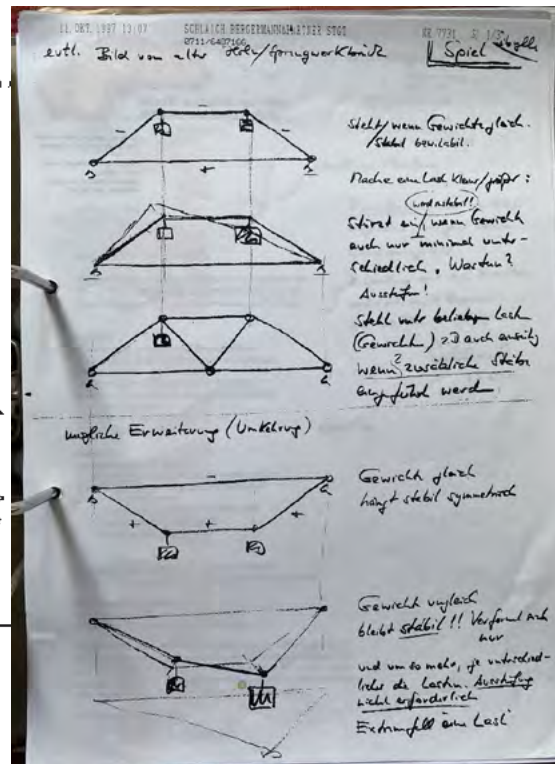 11. OKT. 1997 13:07 SCHLAICH BERGERMANN&PARTNER STGT NR. 7731 S. 1/3
0711/6487166
evtl. Bild vom alter Holz/Sprengwerkbrück
Spiel
-
-
-
+
Steht/wenn Gewichte gleich.
/Steht bewilabil.
Mache eine Last kleiner/größer:
wird instabil!
Stürzt ein, wenn Gewicht
auch nur minimal unter-
schiedlich. Warum?
Ausstufen!
Steht unter beliebigen Lasten
(Gewicht) zB auch einseitig
wenn 2 zusätzliche Stäbe
eingeführt werden
mögliche Erweiterung (Umkehrung)
-
+
+
+
Gewicht gleich
hängt stabil symmetrisch
Gewicht ungleich
bleibt stabil!! Verformt sich
nur
und um so mehr, je unterschied-
licher die Lasten. Aussteifung
nicht erforderlich
Extremfall eine Last